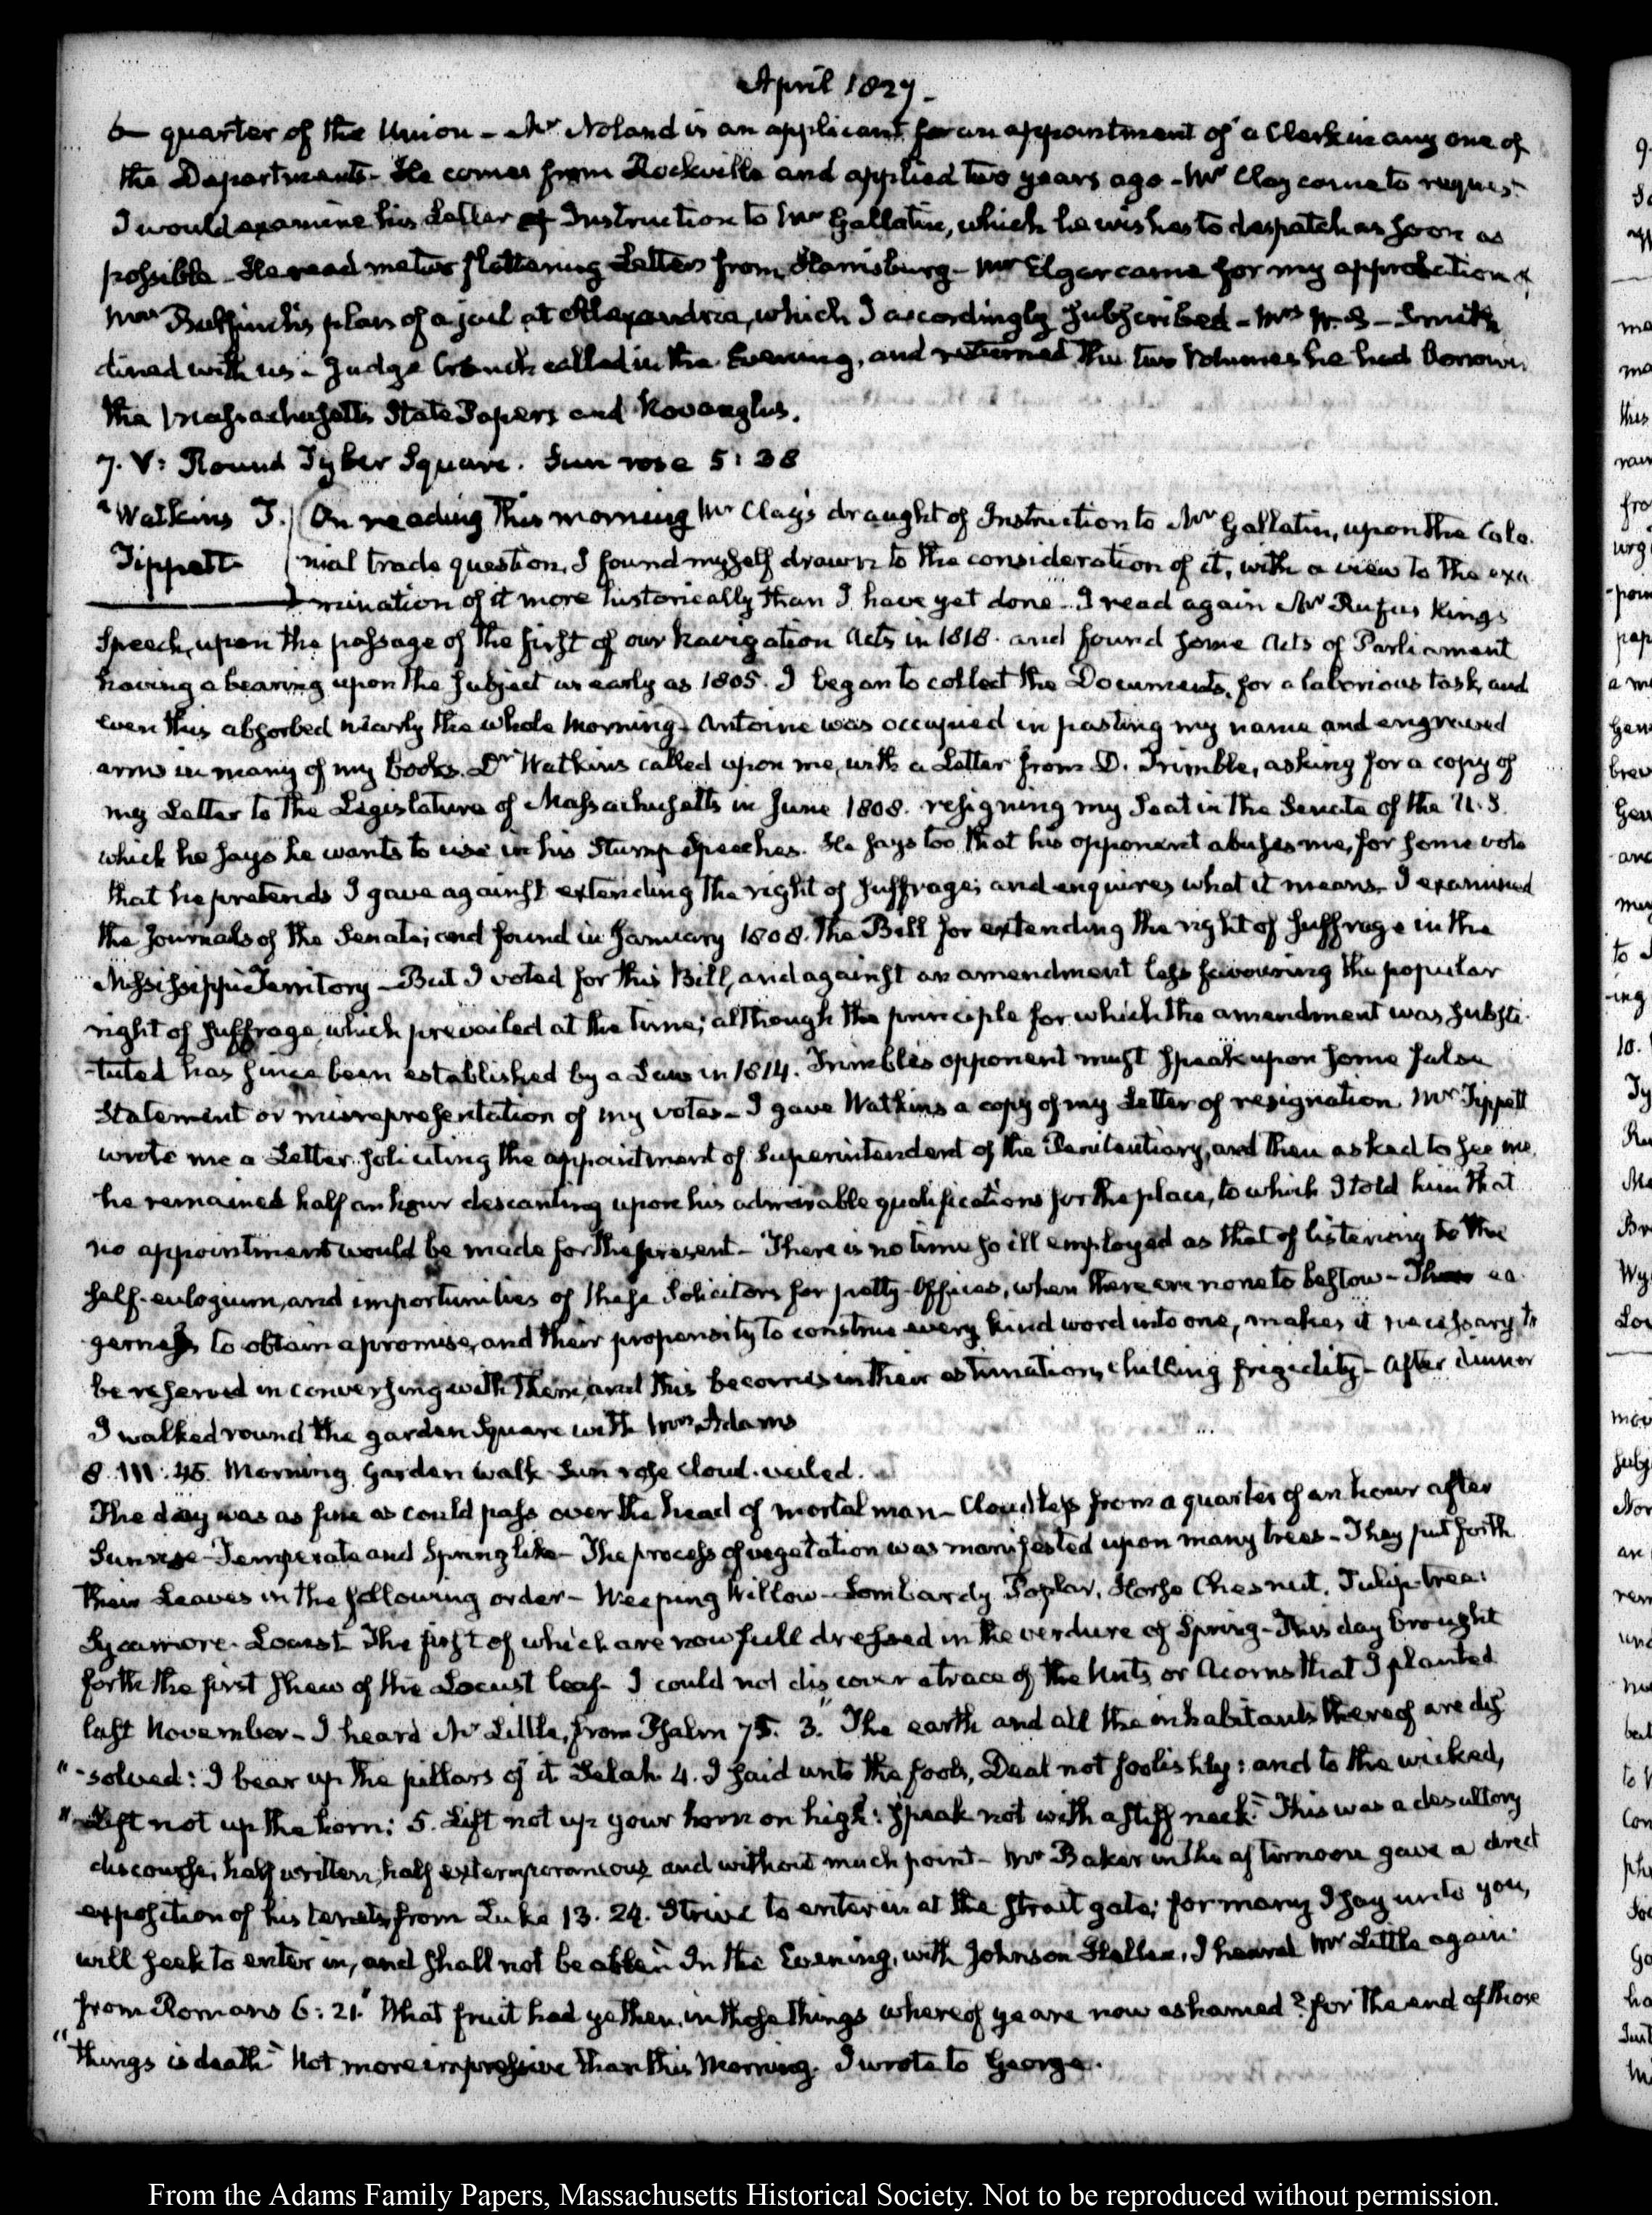 April 1827.
6— quarter of the Union – Mr Noland is an applicant for an appointment of a Clerk in any one of
the Departments – He comes from Rockville and applied two years ago – Mr Clay came to request
I would examine his Letter of Instruction to Mr Gallatin, which he wishes to despatch as soon as
possible – He read me two flattering Letters from Harrisburg – Mr Elgar came for my approbation of
Mr Bulfinch's plan of a jail at Alexandria, which I accordingly subscribed – Mrs W. S. Smith
dined with us – Judge Cranch called in the Evening, and returned the two volumes he had borrowed
the Massachusetts State Papers and Novanglus.
7. V: Round Tyber Square. Sun rose 5:38
Watkins T. On reading this morning Mr Clay's draught of Instruction to Mr Gallatin, upon the Colo-
Tippett nial trade question, I found myself drawn to the consideration of it, with a view to the exa-
mination of it more historically than I have yet done – I read again Mr Rufus King's
Speech, upon the passage of the first of our Navigation Acts in 1818. and found some Acts of Parliament
having a bearing upon the subject as early as 1805. I began to collect the Documents, for a laborious task, and
even this absorbed nearly the whole morning – Antoine was occupied in pasting my name and engraved
arms in many of my books. Dr Watkins called upon me, with a Letter from D. Trimble, asking for a copy of
my Letter to the Legislature of Massachusetts in June 1808. resigning my Seat in the Senate of the U.S.
which he says he wants to use in his Stump Speeches. He says too that his opponent abuses me, for some vote
that he pretends I gave against extending the right of suffrage; and enquires what it means – I examined
the Journals of the Senate; and found in January 1808. the Bill for extending the right of suffrage in the
Mississippi Territory – But I voted for this Bill, and against an amendment less favouring the popular
right of suffrage, which prevailed at the time; although the principle for which the amendment was substi-
-tuted has since been established by a Law in 1814. Trimble's opponent must speak upon some false
statement or misrepresentation of my votes – I gave Watkins a copy of my Letter of resignation. Mr Tippett
wrote me a Letter soliciting the appointment of Superintendent of the Penitentiary, and then asked to see me.
he remained half an hour descanting upon his admirable qualifications for the place, to which I told him that
no appointment would be made for the present – There is no time so ill employed as that of listening to the
self-eulogium, and importunities of these Solicitors for petty Offices, when there are none to bestow – Their ea-
gerness to obtain a promise, and their propensity to construe every kind word into one, makes it necessary to
be reserved in conversing with them, and this becomes in their estimation, chilling frigidity – After dinner
I walked round the garden Square with Mrs Adams
8. IV:45. Morning Garden walk Sun rose cloud-veiled.
The day was as fine as could pass over the head of mortal man – Cloudless from a quarter of an hour after
Sunrise – Temperate and Spring like – The process of vegetation was manifested upon many trees – They put forth
their Leaves in the following order – Weeping Willow – Lombardy Poplar, Horse Chesnut, Tulip-tree:
Sycamore. Locust The first of which are now full dressed in the verdure of Spring – This day brought
forth the first shew of the Locust leaf – I could not discover a trace of the Nuts or Acorns that I planted
last November – I heard Mr Little, from Psalm 75. 3. "The earth and all the inhabitants thereof are dis-
" -solved: I bear up the pillars of it Selah. 4. I said unto the fools, Deal not foolishly: and to the wicked,
" Lift not up the horn: 5. Lift not up your horn on high: speak not with a stiff neck." This was a desultory
discourse; half written, half extemporaneous and without much point – Mr Baker in the afternoon gave a direct
exposition of his tenets, from Luke 13. 24. Strive to enter in at the strait gate; for many I say unto you,
will seek to enter in, and shall not be able." In the Evening, with Johnson Hellen, I heard Mr Little again
from Romans 6:21. "What fruit had ye then, in those things whereof ye are now ashamed? for the end of those
"things is death" Not more impressive than this Morning. I wrote to George.
From the Adams Family Papers, Massachusetts Historical Society. Not to be reproduced without permission.